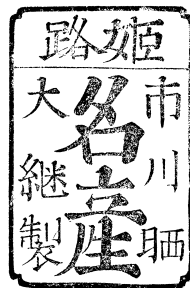 姫路
市川晒
名産
大継製